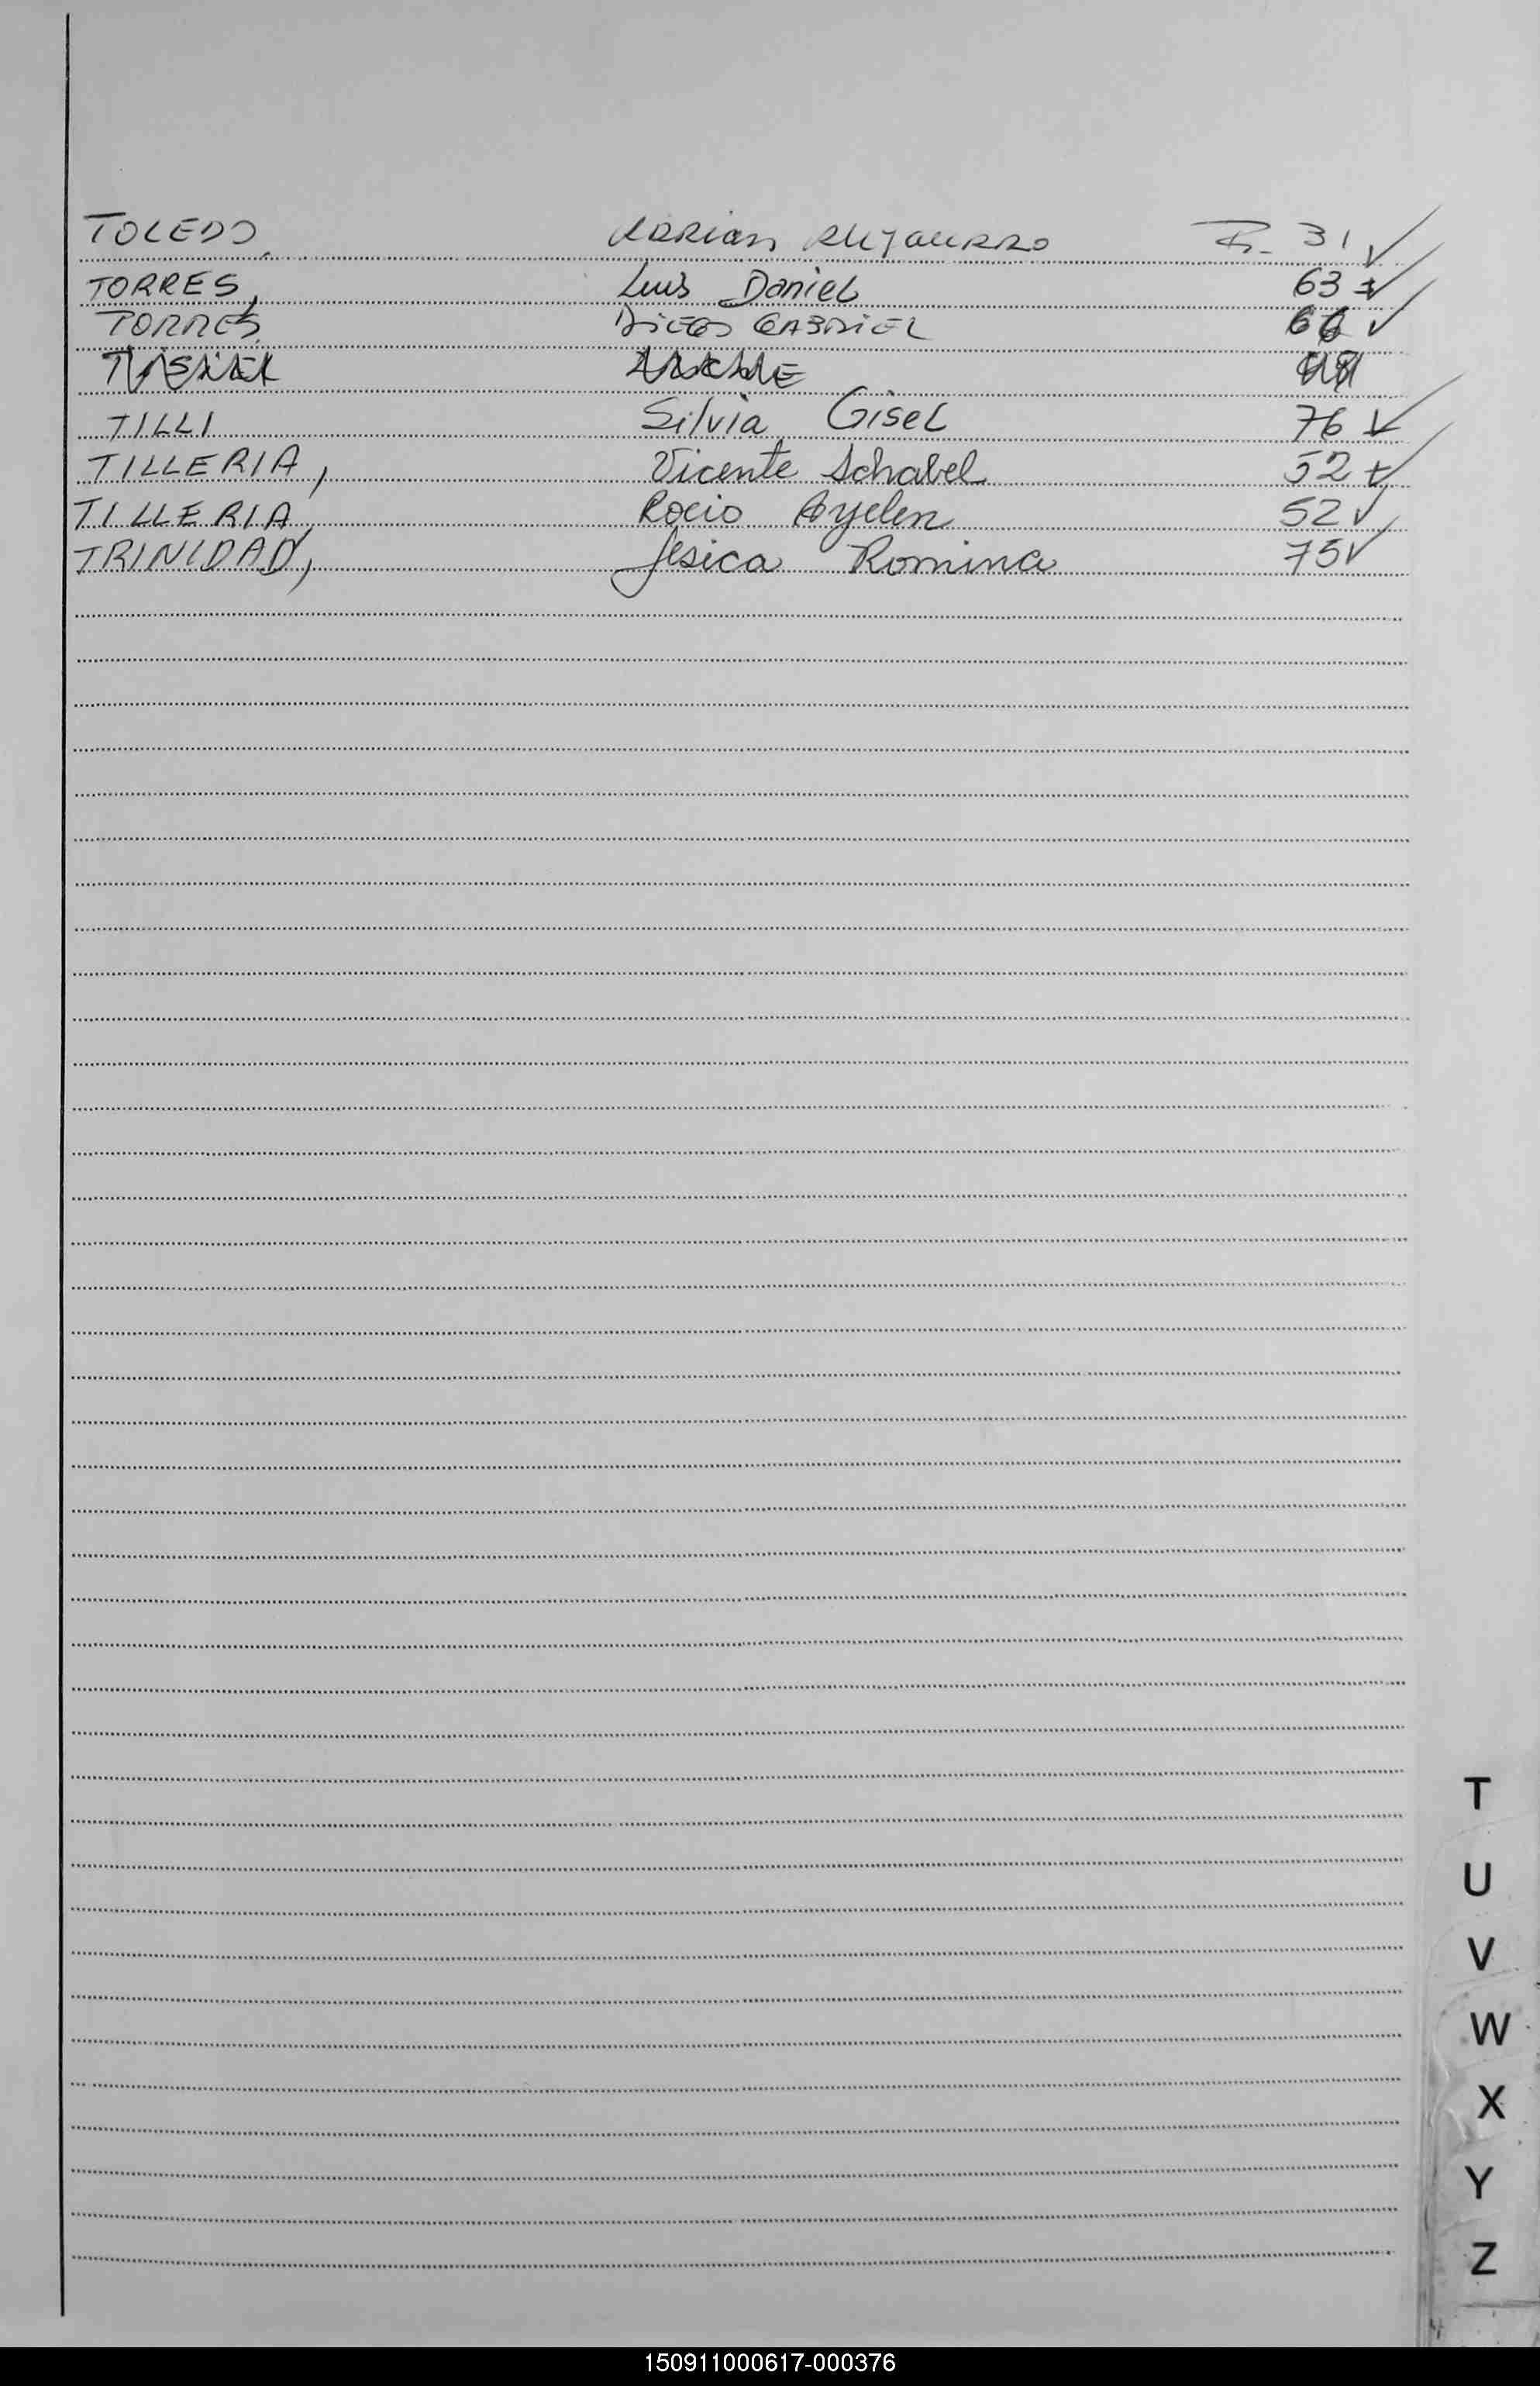 TOLEDO, Adrian Alejandro F. 31 ✓
TORRES, Luis Daniel 63 ✓
TORRES, DIEGO GABRIEL ✓
TILLI Silvia Gisel 76 ✓
TILLERIA, Vicente Schabel 52 ✓
TILLERIA, Rocio Ayelen 52 ✓
TRINIDAD, Jesica Romina 75 ✓
T
U
V
W
X
Y
Z
150911000617-000376